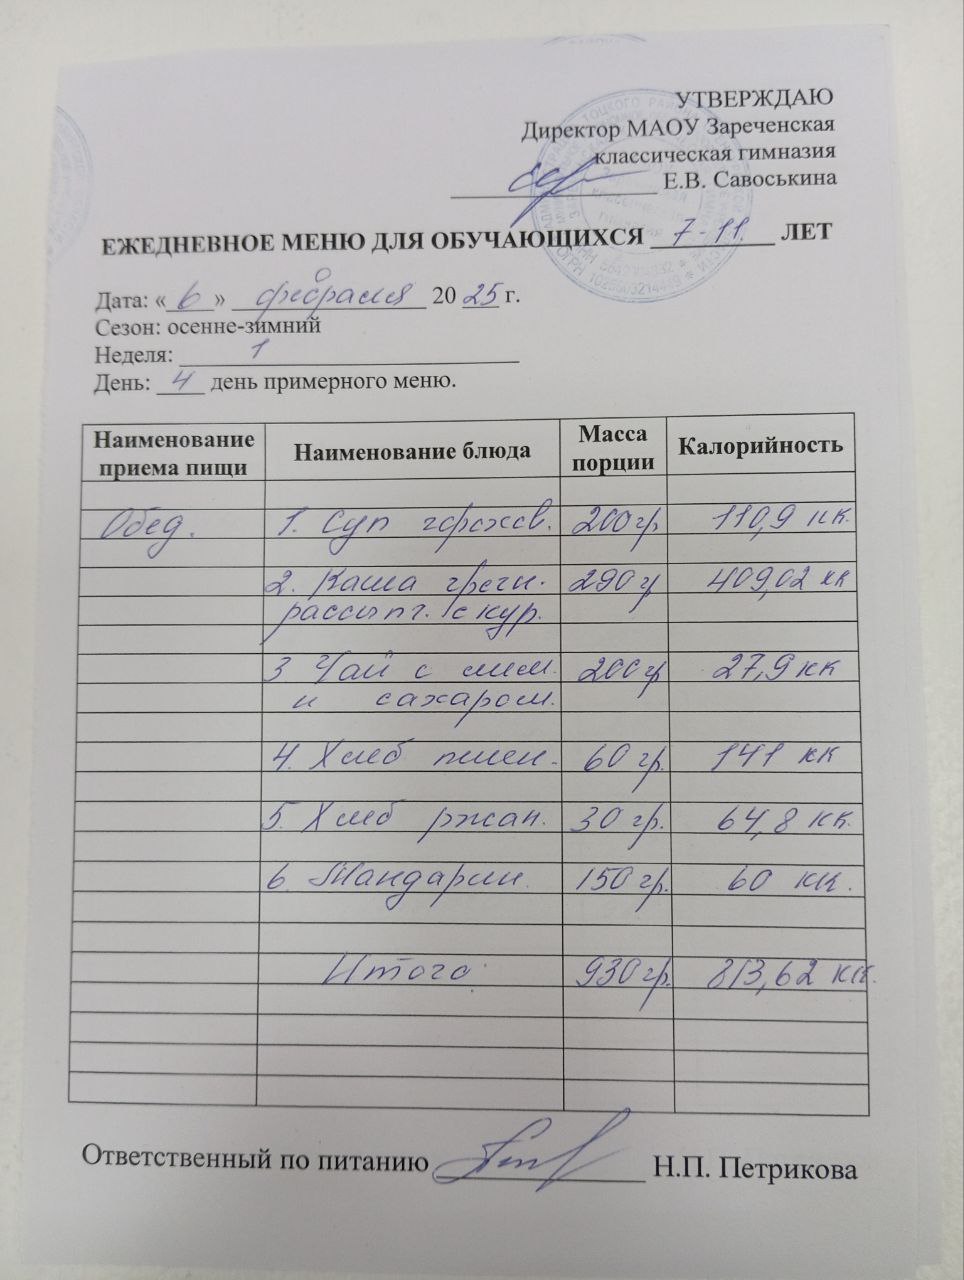 УТВЕРЖДАЮ
Директор МАОУ Зареченская
классическая гимназия
Е.В. Савоськина
ЕЖЕДНЕВНОЕ МЕНЮ ДЛЯ ОБУЧАЮЩИХСЯ 7-11. ЛЕТ
Дата: «6» февраля 2025 г.
Сезон: осенне-зимний
Неделя: 1
День: 4 день примерного меню.
Наименование приема пищи Наименование блюда Масса порции Калорийность
Обед. 1. Суп горохов. 200 гр 110,9 кк.
2. Каша гречн. 290 гр 409,02 кк
рассыпч. с кур.
3 Чай с лим. 200 гр 27,9 кк
и сахаром.
4. Хлеб пшен. 60 гр. 141 кк
5. Хлеб ржан. 30 гр. 64,8 кк.
6. Мандарин. 150 гр. 60 кк.
Итого 930 гр. 813,62 кк.
Ответственный по питанию Н.П. Петрикова